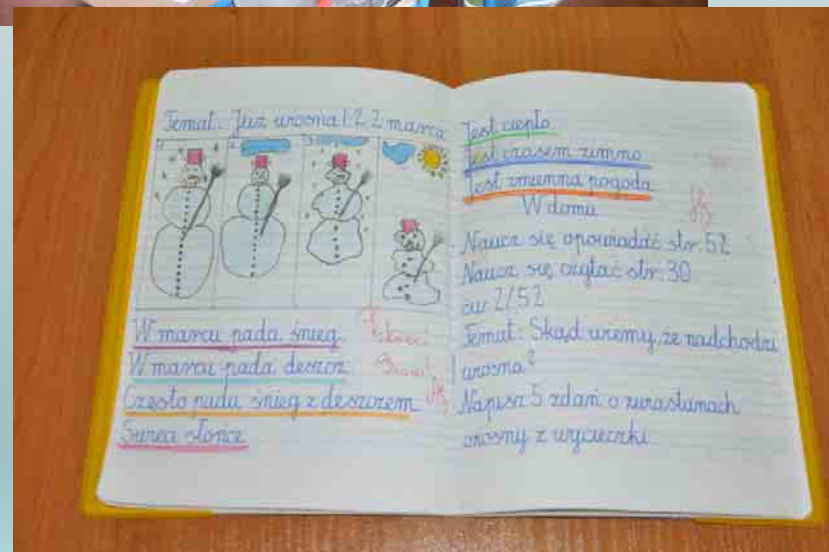 Temat: Już wiosna! 22 marca
W marcu pada śnieg.
W marcu pada deszcz.
Często pada śnieg z deszczem
Świeci słońce
Jest ciepło.
Jest czasem zimno
Jest zmienna pogoda
W domu
Naucz się opowiadać str. 52
Naucz się czytać str. 30
ćw 2/52
Temat: Skąd wiemy, że nadchodzi
wiosna?
Napisz 5 zdań o zwiastunach
wiosny z wycieczki